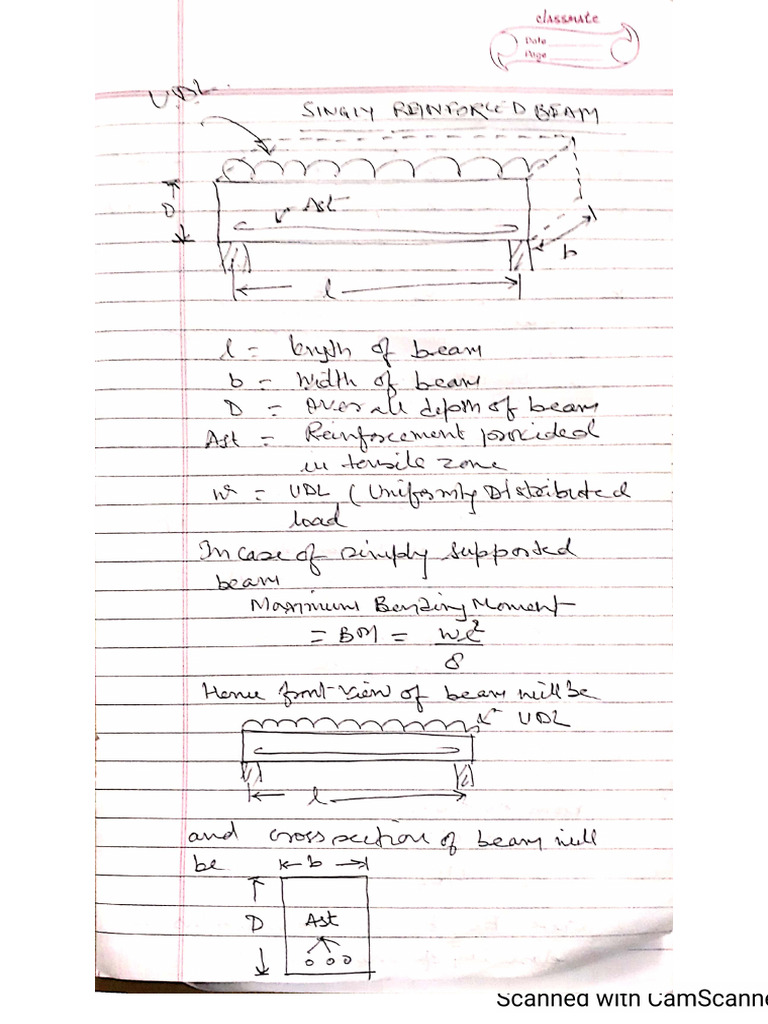 classmate
Date
Page
UDL
SINGLY REINFORCED BEAM
D
Ast
b
l
l = length of beam
b = width of beam
D = Overall depth of beam
Ast = Reinforcement provided
in tensile zone
w = UDL (Uniformly Distributed
load
In case of simply supported
beam
Maximum Bending Moment
= BM = wl²/8
Hence front view of beam will be
UDL
l
and cross section of beam will
be
b
D
Ast
Scanned with CamScanne